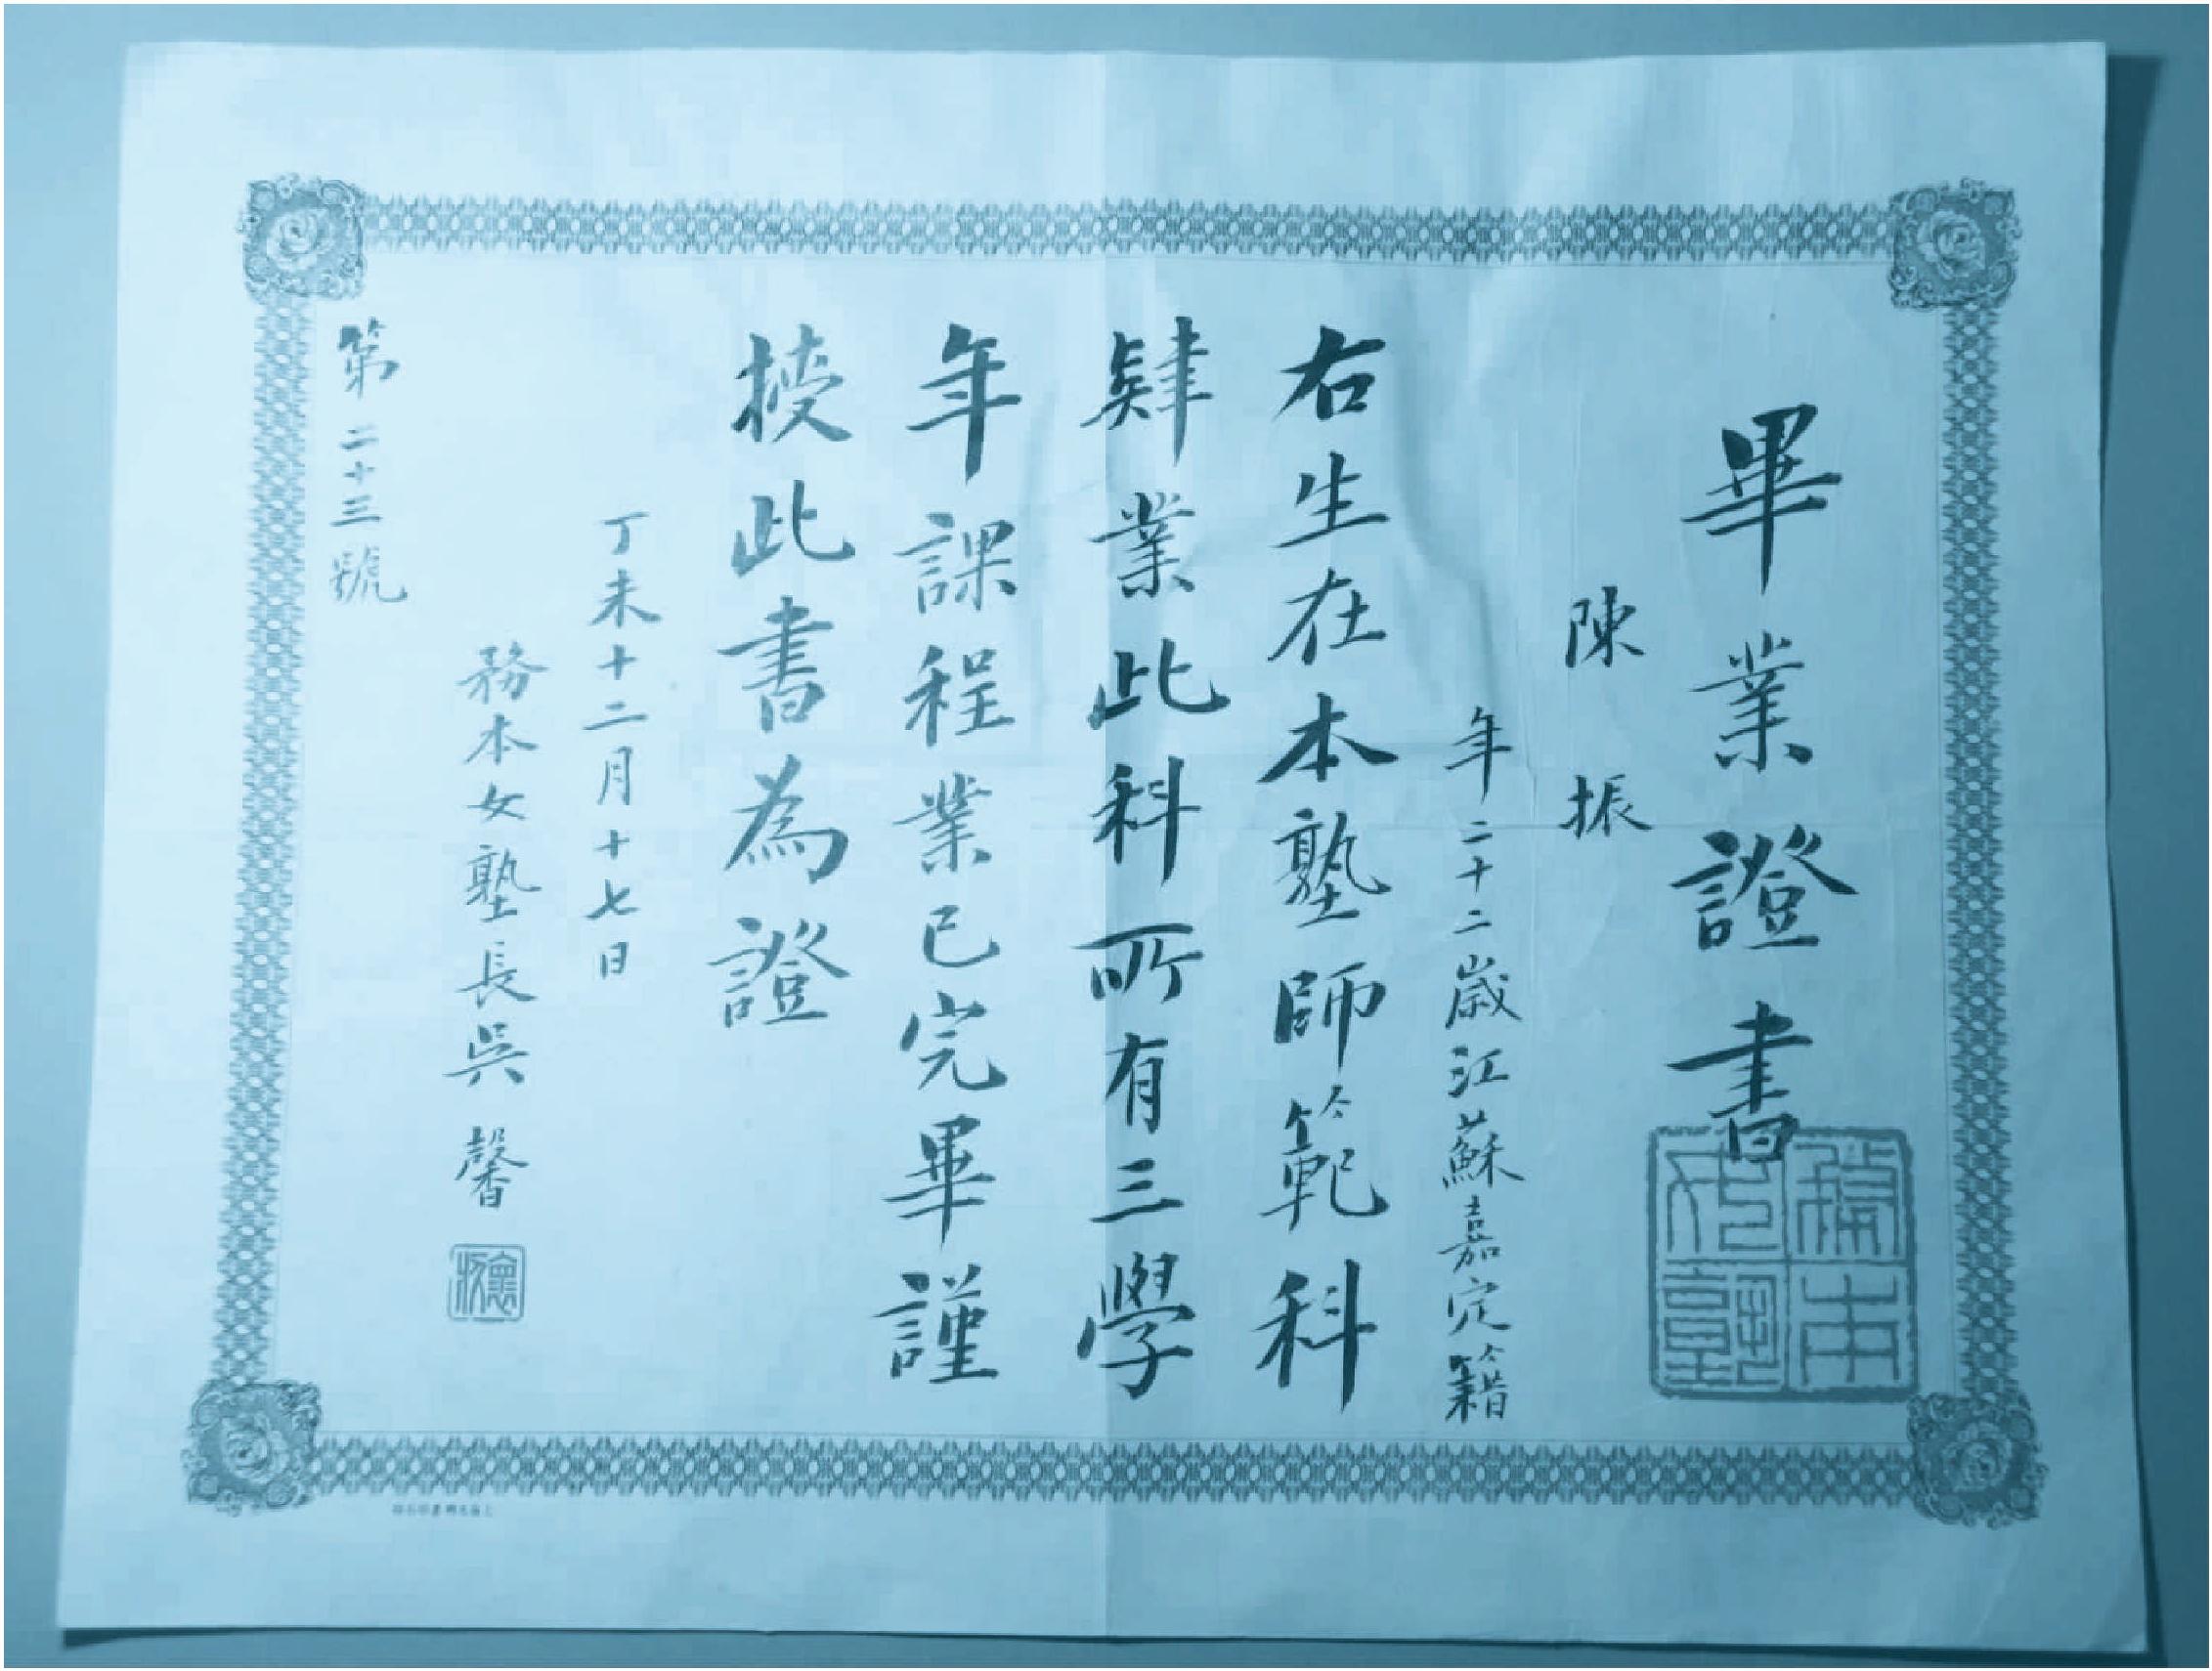 畢業證書
陳振
年二十二歲江蘇嘉定籍
右生在本塾師範科
肄業此科所有三學
年課程業已完畢謹
授此書為證
丁未十二月十七日
務本女塾長吳馨
第二十三號
務本女塾
懷疚